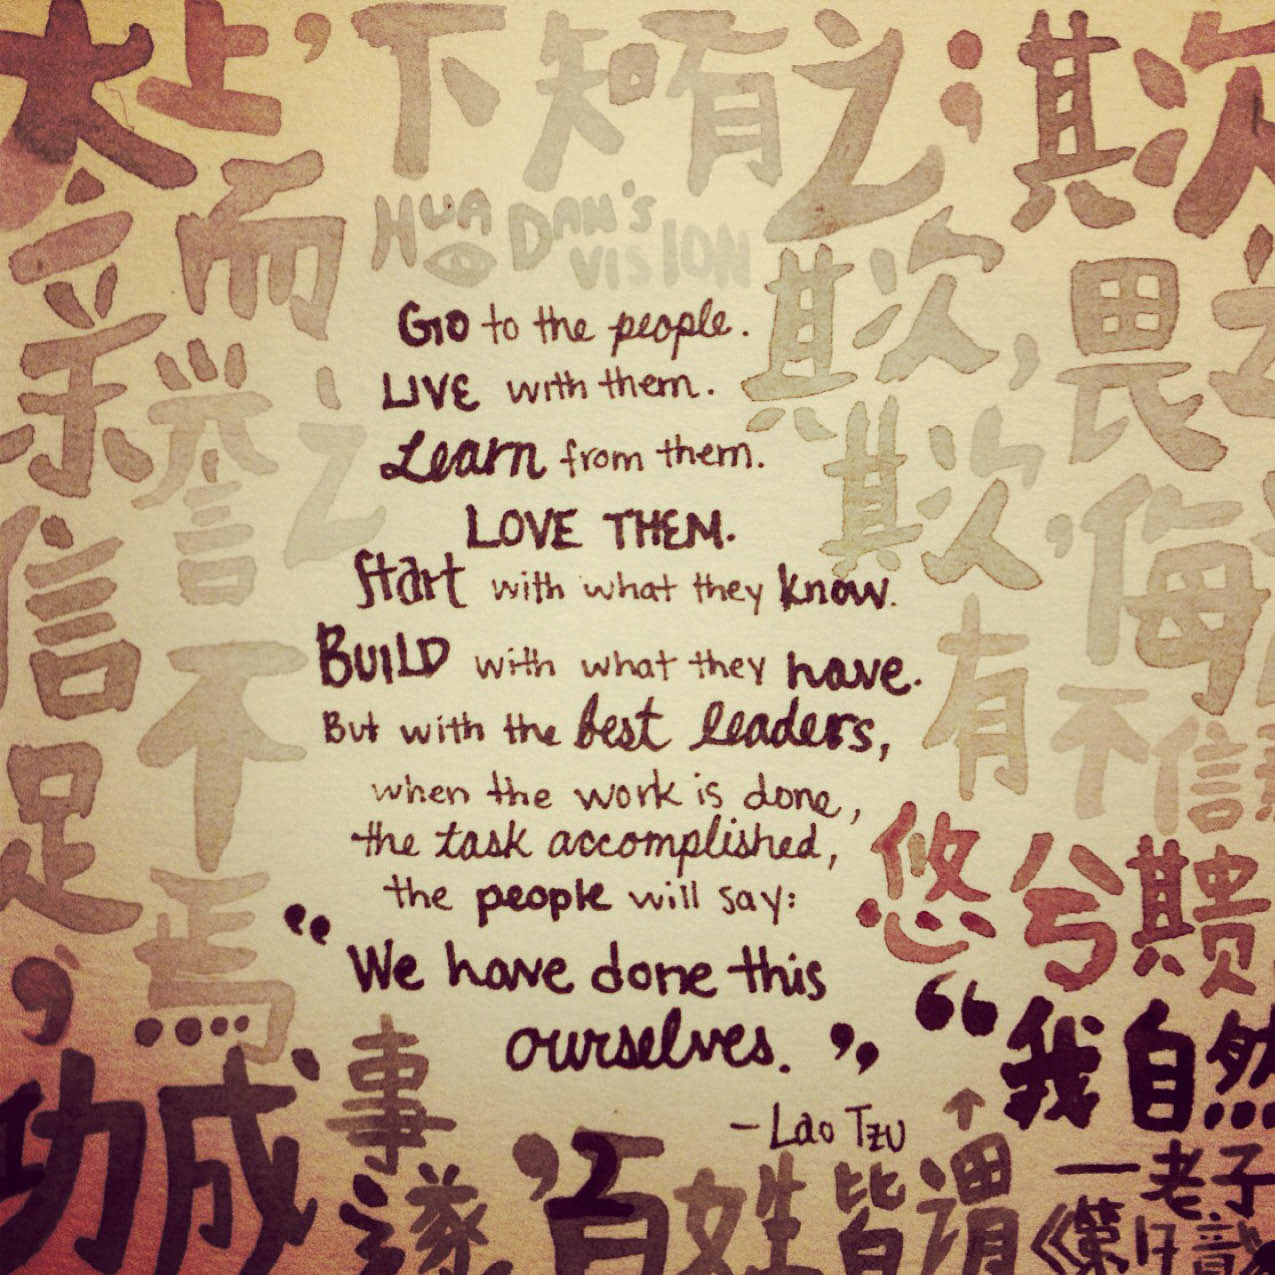 太上,下知有之;其次
亲而
誉之
HUA DAN'S
VISION
其次,畏之
其次,侮
信不
足焉,
有不信
Go to the people.
LIVE with them.
Learn from them.
LOVE THEM.
Start with what they know.
BUILD with what they have.
But with the best leaders,
when the work is done,
the task accomplished,
the people will say:
"We have done this
ourselves."
—Lao Tzu
悠兮其贵
功成事遂,百姓皆谓
"我自然
一老子
《第17章